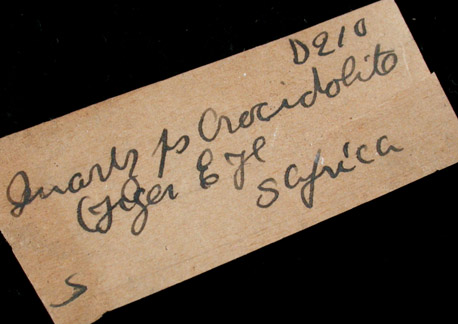 D210
Quartz ps Crocidolite
(Tiger Eye
S Africa
S